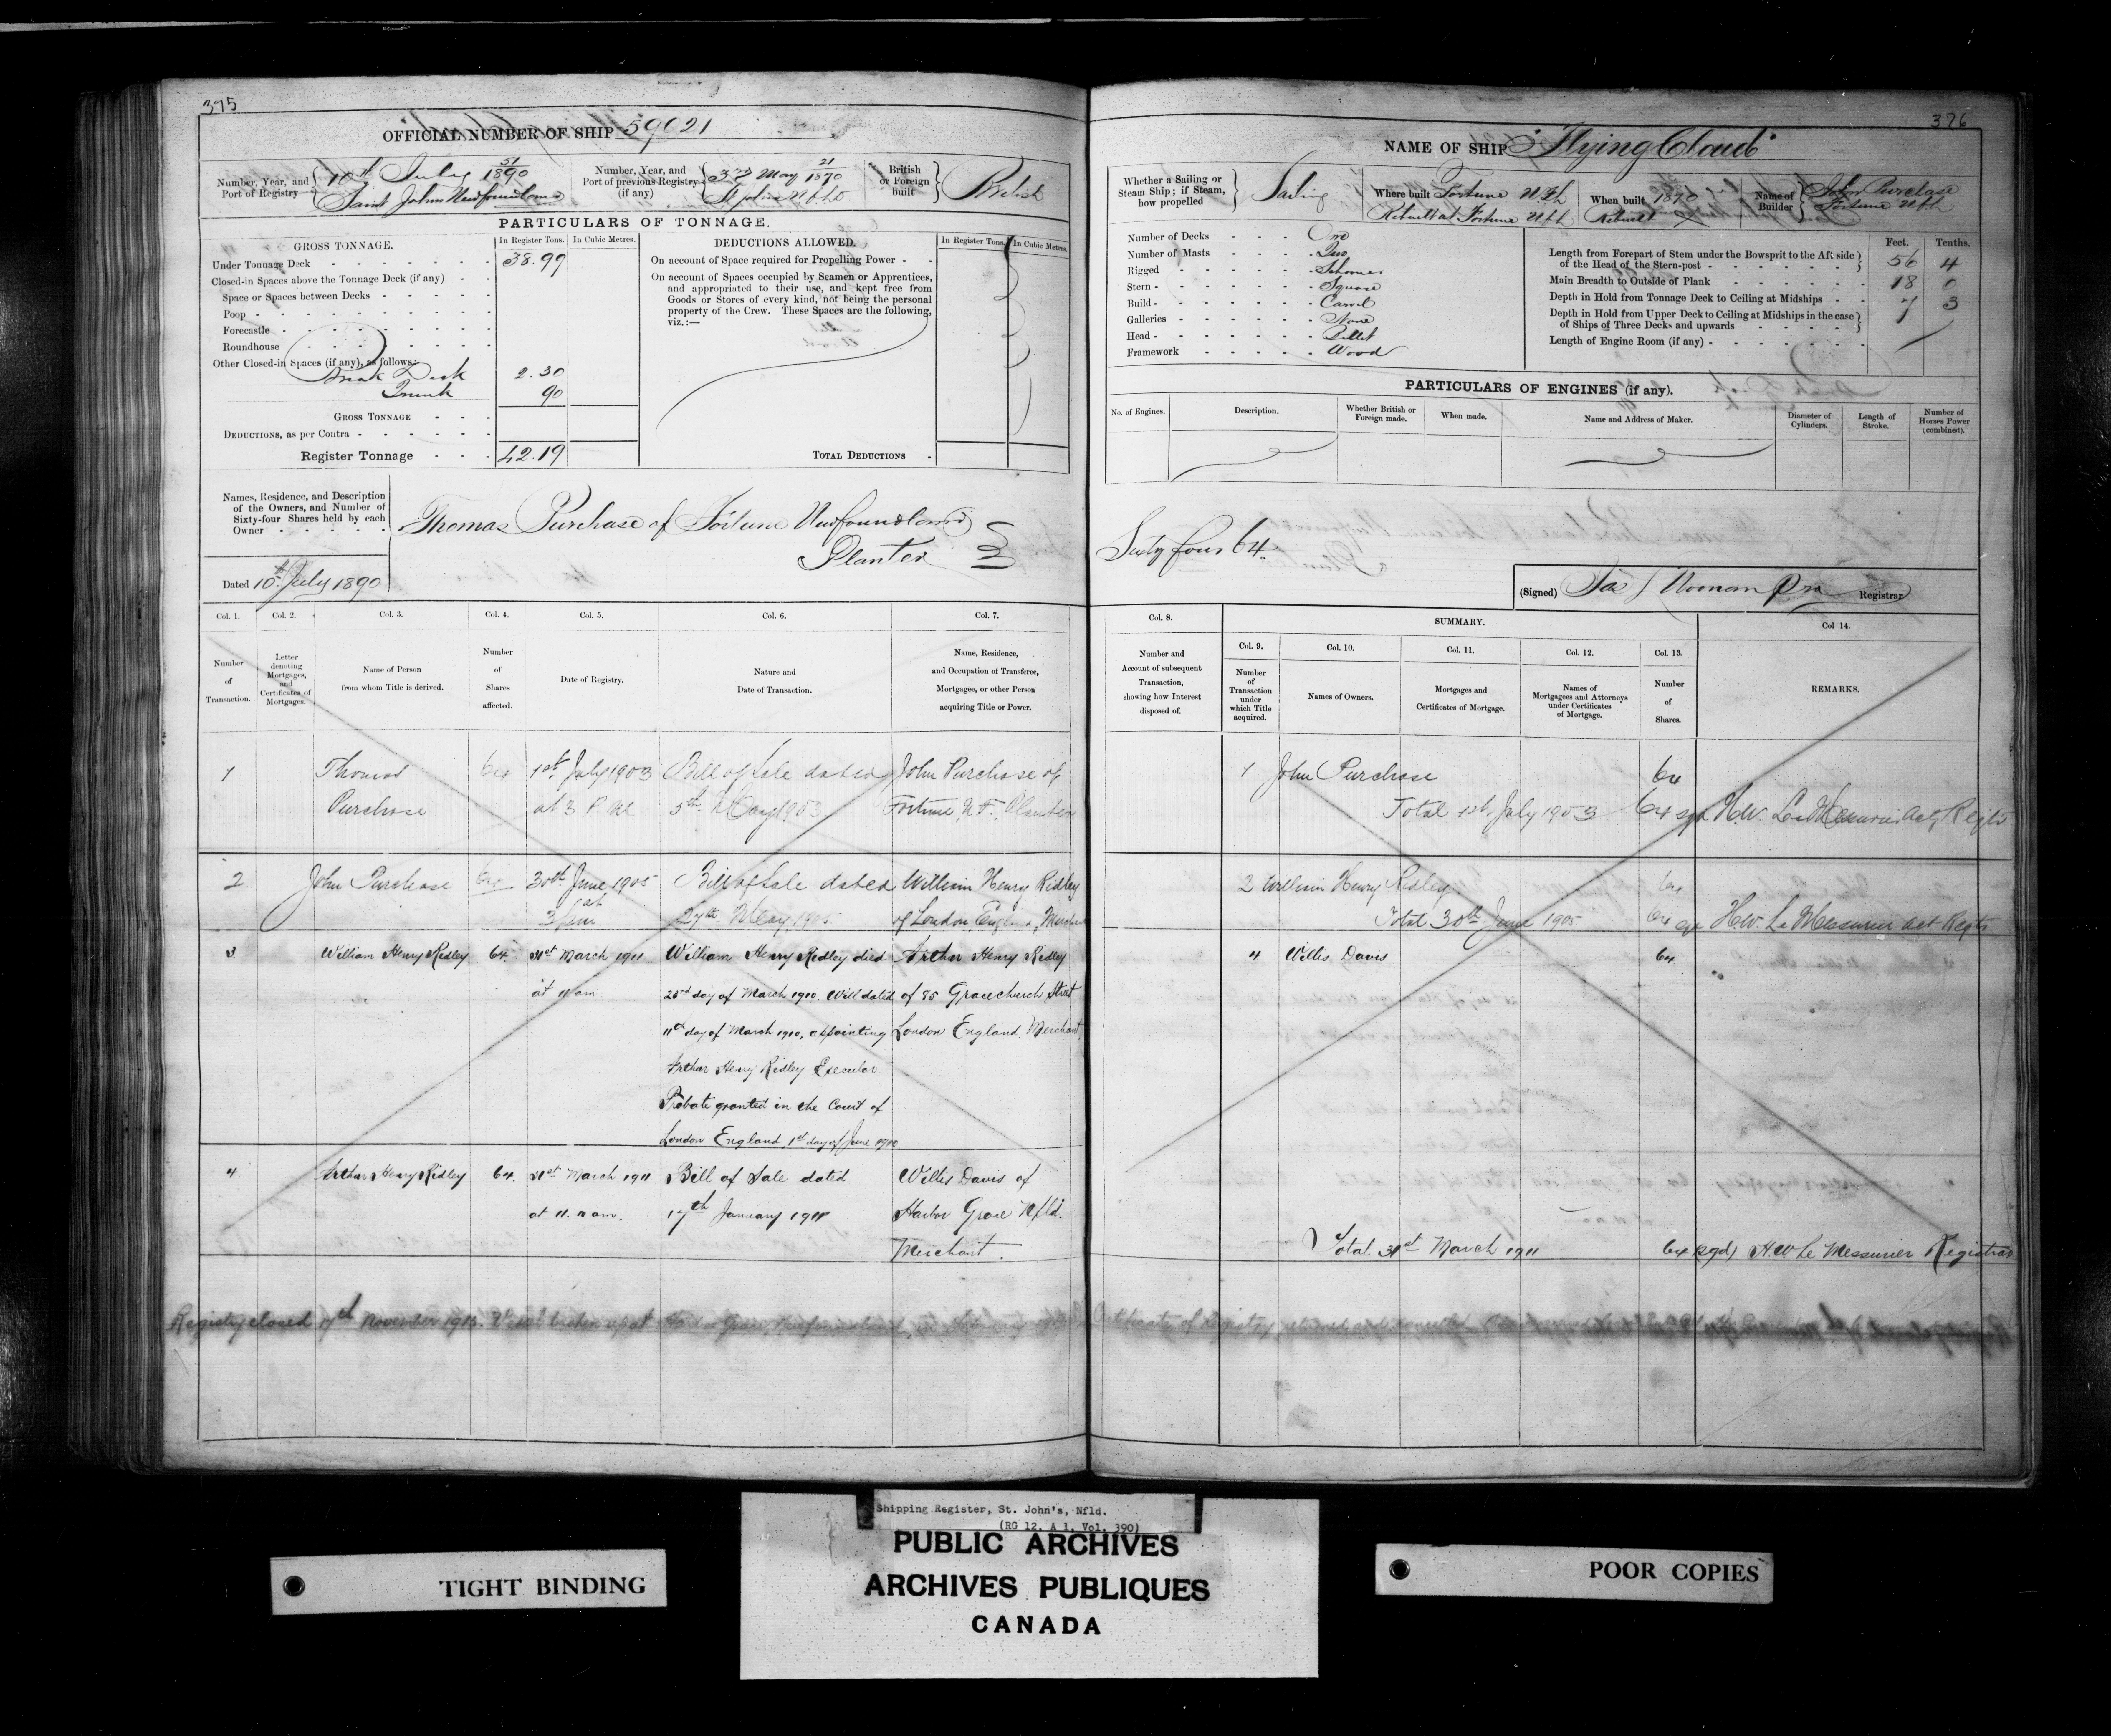 375
OFFICIAL NUMBER OF SHIP 59021
Number, Year, and Port of Registry 10th July 51/1890
Saint Johns Newfoundland
Number, Year, and Port of previous Registry (if any) May 21/1870
St Johns Nfld
British or Foreign built British
PARTICULARS OF TONNAGE.
GROSS TONNAGE.
In Register Tons.
In Cubic Metres.
Under Tonnage Deck 38.99
Closed-in Spaces above the Tonnage Deck (if any)
Space or Spaces between Decks
Poop
Forecastle
Roundhouse
Other Closed-in Spaces (if any), as follows:
Break Deck 2.30
Trunk 90
GROSS TONNAGE
DEDUCTIONS, as per Contra
Register Tonnage 42.19
DEDUCTIONS ALLOWED.
In Register Tons.
In Cubic Metres.
On account of Space required for Propelling Power
On account of Spaces occupied by Seamen or Apprentices,
and appropriated to their use, and kept free from
Goods or Stores of every kind, not being the personal
property of the Crew. These Spaces are the following,
viz.:—
TOTAL DEDUCTIONS
Names, Residence, and Description
of the Owners, and Number of
Sixty-four Shares held by each
Owner
Thomas Purchase of Fortune Newfoundland
Planter
Dated 10th July 1890
Col. 1.
Col. 2.
Col. 3.
Col. 4.
Col. 5.
Col. 6.
Col. 7.
Number of Transaction.
Letter denoting Mortgages, and Certificates of Mortgages.
Name of Person from whom Title is derived.
Number of Shares affected.
Date of Registry.
Nature and Date of Transaction.
Name, Residence, and Occupation of Transferee, Mortgagee, or other Person acquiring Title or Power.
1 Thomas 64 1st July 1903 Bill of Sale dated John Purchase of
Purchase at 3 P.M. 5th May 1903 Fortune, N.F., Planter
2 John Purchase 64 30th June 1905 Bill of Sale dated William Henry Ridley
at 3 pm 27th May 1905 of London England, Merchant
3 William Henry Ridley 64. 31st March 1911 William Henry Ridley died Arthur Henry Ridley
at 11 am day of March 1910. Will dated of 85 Gracechurch Street
11th day of March 1910, appointing London England. Merchant.
Arthur Henry Ridley Executor
Probate granted in the Court of
London England, 1st day of June 1910
4 Arthur Henry Ridley 64. 31st March 1911 Bill of Sale dated Willis Davis of
at 11. am. 17th January 1911 Harbor Grace Nfld.
Merchant.
Registry closed 17th November 1913. Vessel broken up at Harbor Grace, Newfoundland
376
NAME OF SHIP "Flying Cloud"
Whether a Sailing or Steam Ship; if Steam, how propelled Sailing
Where built Fortune Nfld
Rebuilt at Fortune Nfld
When built 1870
Rebuilt
Name of Builder John Purchase
Fortune Nfld
Number of Decks One
Number of Masts Two
Rigged Schooner
Stern Square
Build Carvel
Galleries None
Head Billet
Framework Wood
Feet. Tenths.
Length from Forepart of Stem under the Bowsprit to the Aft side
of the Head of the Stern-post 56 4
Main Breadth to Outside of Plank 18 0
Depth in Hold from Tonnage Deck to Ceiling at Midships 7 3
Depth in Hold from Upper Deck to Ceiling at Midships in the case
of Ships of Three Decks and upwards
Length of Engine Room (if any)
PARTICULARS OF ENGINES (if any).
No. of Engines.
Description.
Whether British or Foreign made.
When made.
Name and Address of Maker.
Diameter of Cylinders.
Length of Stroke.
Number of Horses Power (combined).
Sixty four 64
(Signed) Registrar
Col. 8.
SUMMARY.
Col. 9.
Col. 10.
Col. 11.
Col. 12.
Col. 13.
Col 14.
Number and Account of subsequent Transaction, showing how Interest disposed of.
Number of Transaction under which Title acquired.
Names of Owners.
Mortgages and Certificates of Mortgage.
Names of Mortgagees and Attorneys under Certificates of Mortgage.
Number of Shares.
REMARKS.
1 John Purchase 64
Total 1st July 1903 64 sgd H.W. LeMessurier Actg Regtr
2 William Henry Ridley 64
Total 30th June 1905 64 H.W. LeMessurier Act Regtr
4 Willis Davis 64
Total 31st March 1911 64 (Sgd) H.W Le Messurier Registrar
Certificate of Registry returned and cancelled
Shipping Register, St. John's, Nfld.
(RG 12, A 1, Vol. 390)
PUBLIC ARCHIVES
ARCHIVES PUBLIQUES
CANADA
TIGHT BINDING
POOR COPIES